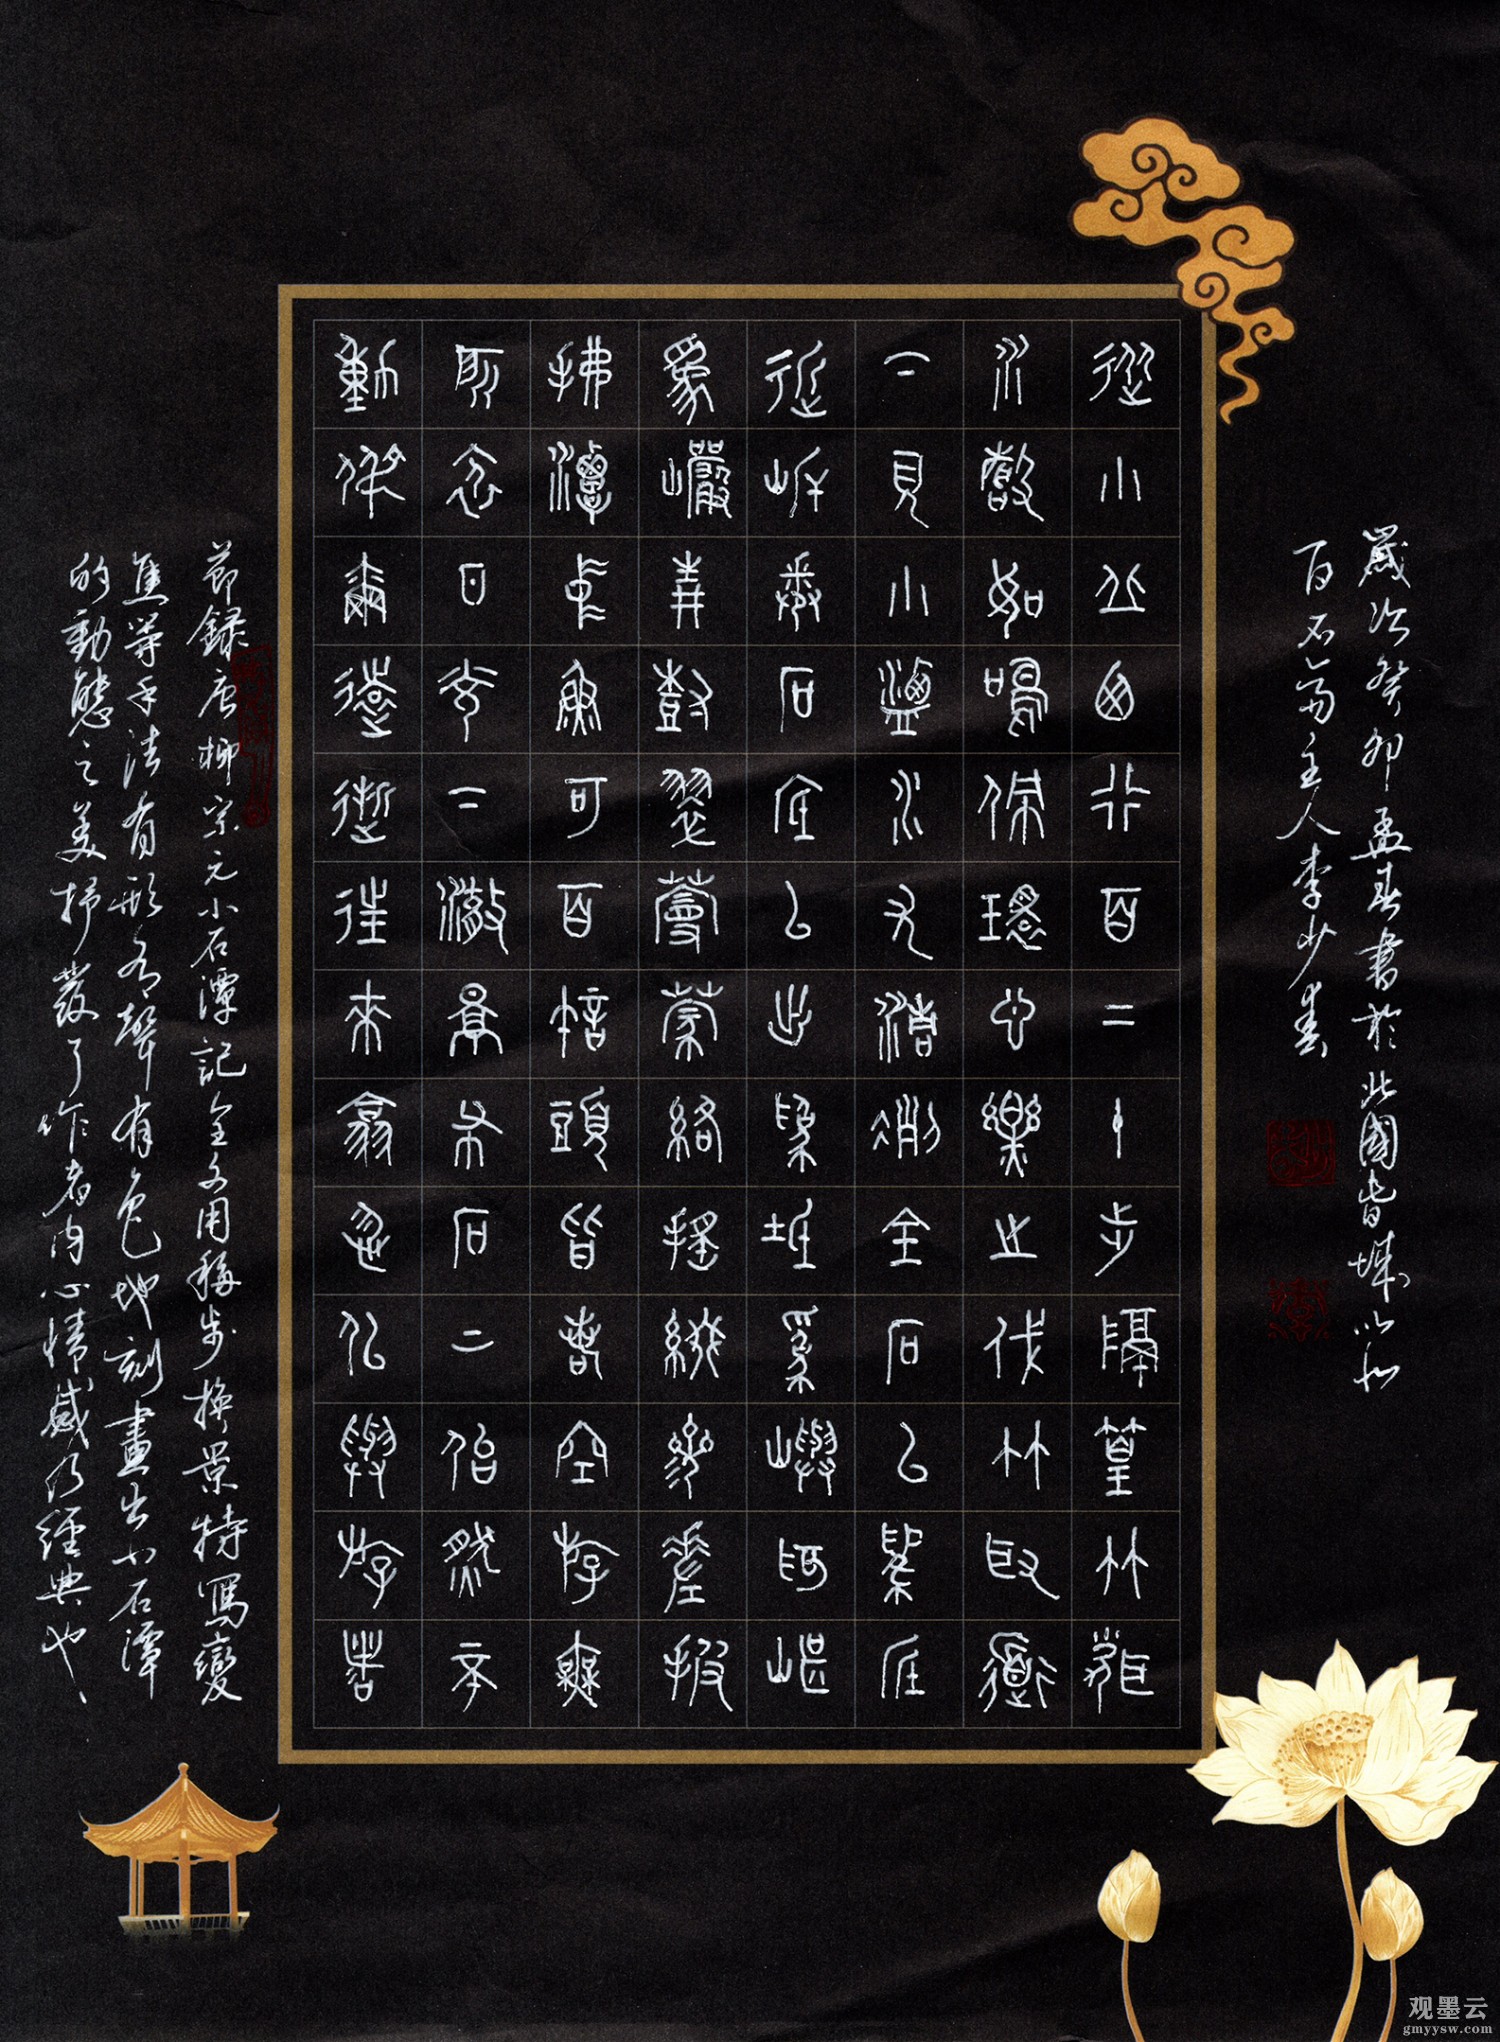 歲次癸卯孟春書於北國旾城
百石齋主人李少春
從小丘西行百二十步隔篁竹聞
水聲如鳴佩環心樂之伐竹取道
下見小潭水尤清冽全石以為底
近岸卷石底以出為坻為嶼為嵁
為巖青樹翠蔓蒙絡搖綴參差披
拂潭中魚可百許頭皆若空游無
所依日光下澈影布石上佁然不
動俶爾遠逝往來翕忽似與游者
節錄唐柳宗元小石潭記全文用移步換景特寫變
焦等手法有形有聲有色地刻畫出小石潭
的動態之美抒發了作者內心情感乃經典也
观墨云
gmyysw.com